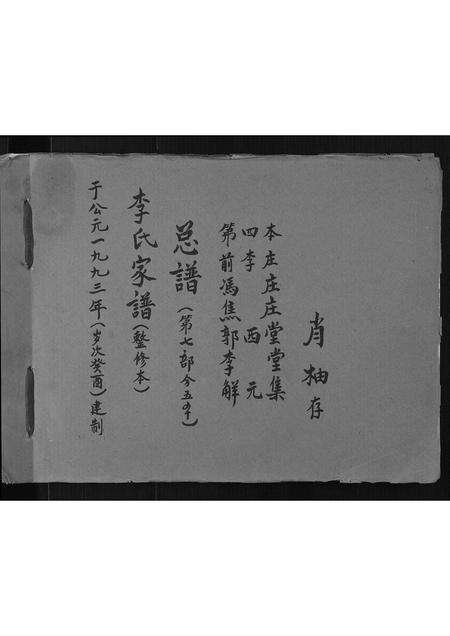 于公元一九九三年(岁次癸酉)建制
李氏家谱(整修本)
总谱(第七部分五本)
第四本
前李庄
馮庄
焦庄
郭西堂
李堂
解元集
肖柚存